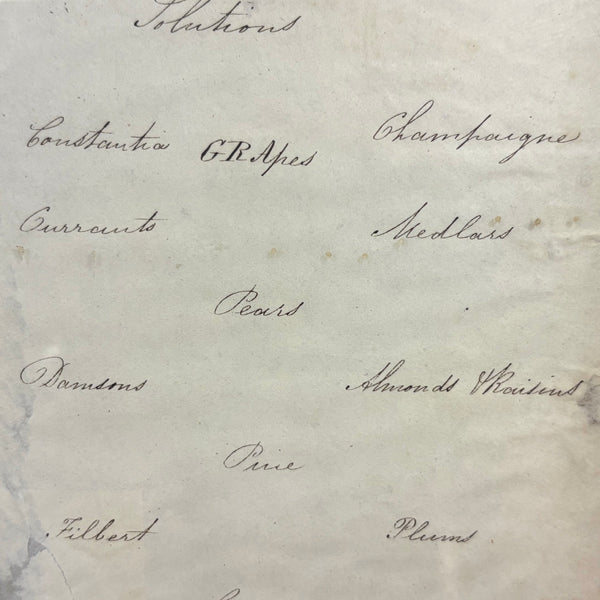 Solutions
Constantia GRApes Champaigne
Currants Medlars
Pears
Damsons Almonds & Raisins
Pine
Filbert Plums